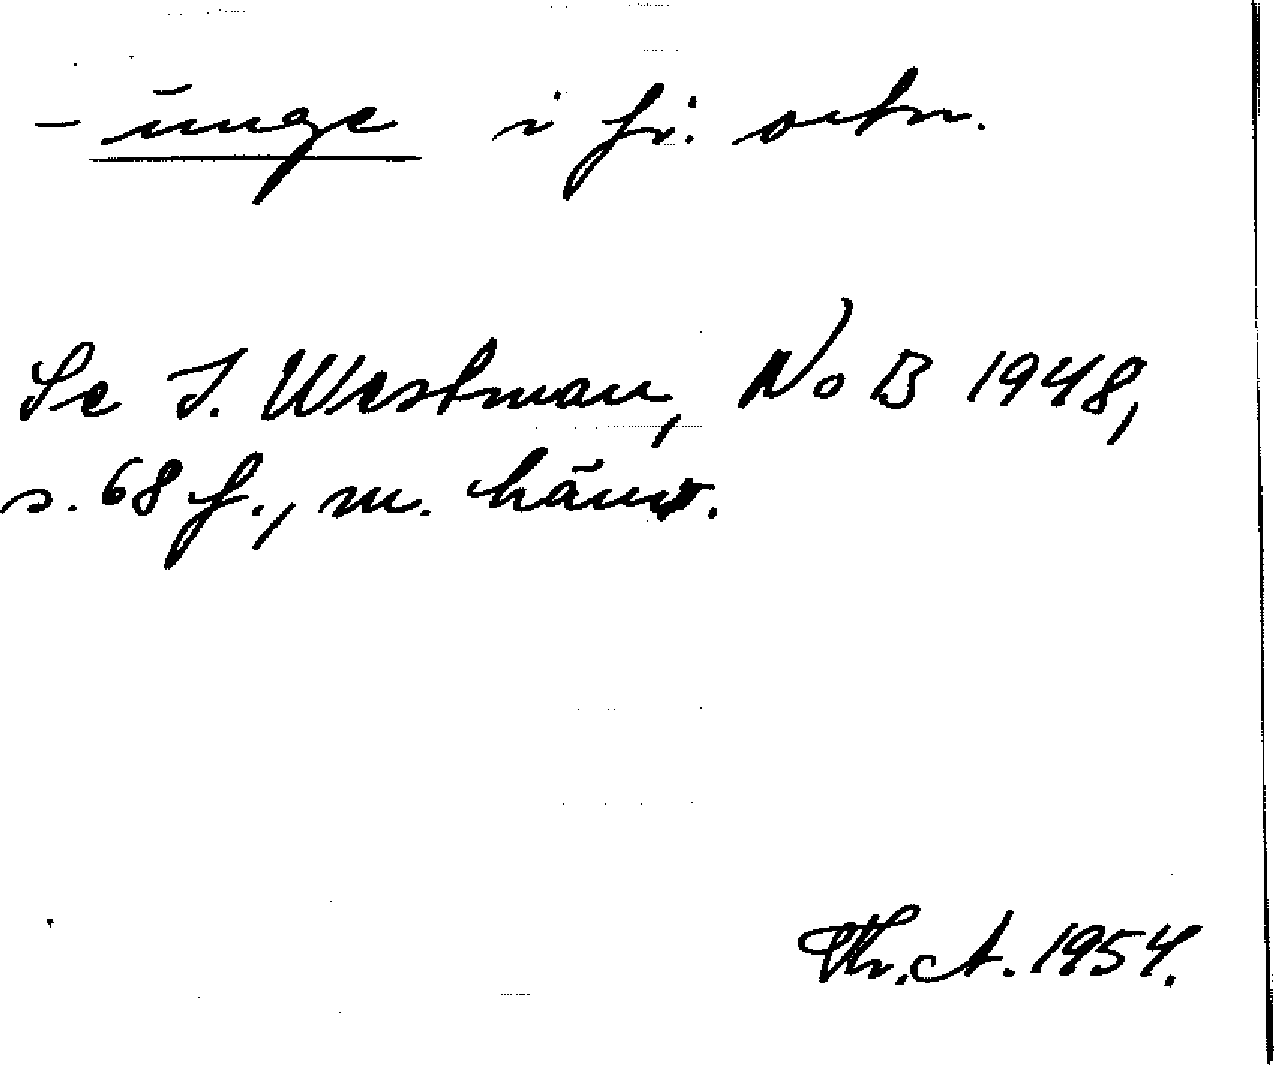 - unge i fi. ortn.
Se I. Westman, NoB 1948,
s. 68 f., m. hänv.
Thr. A. 1954.